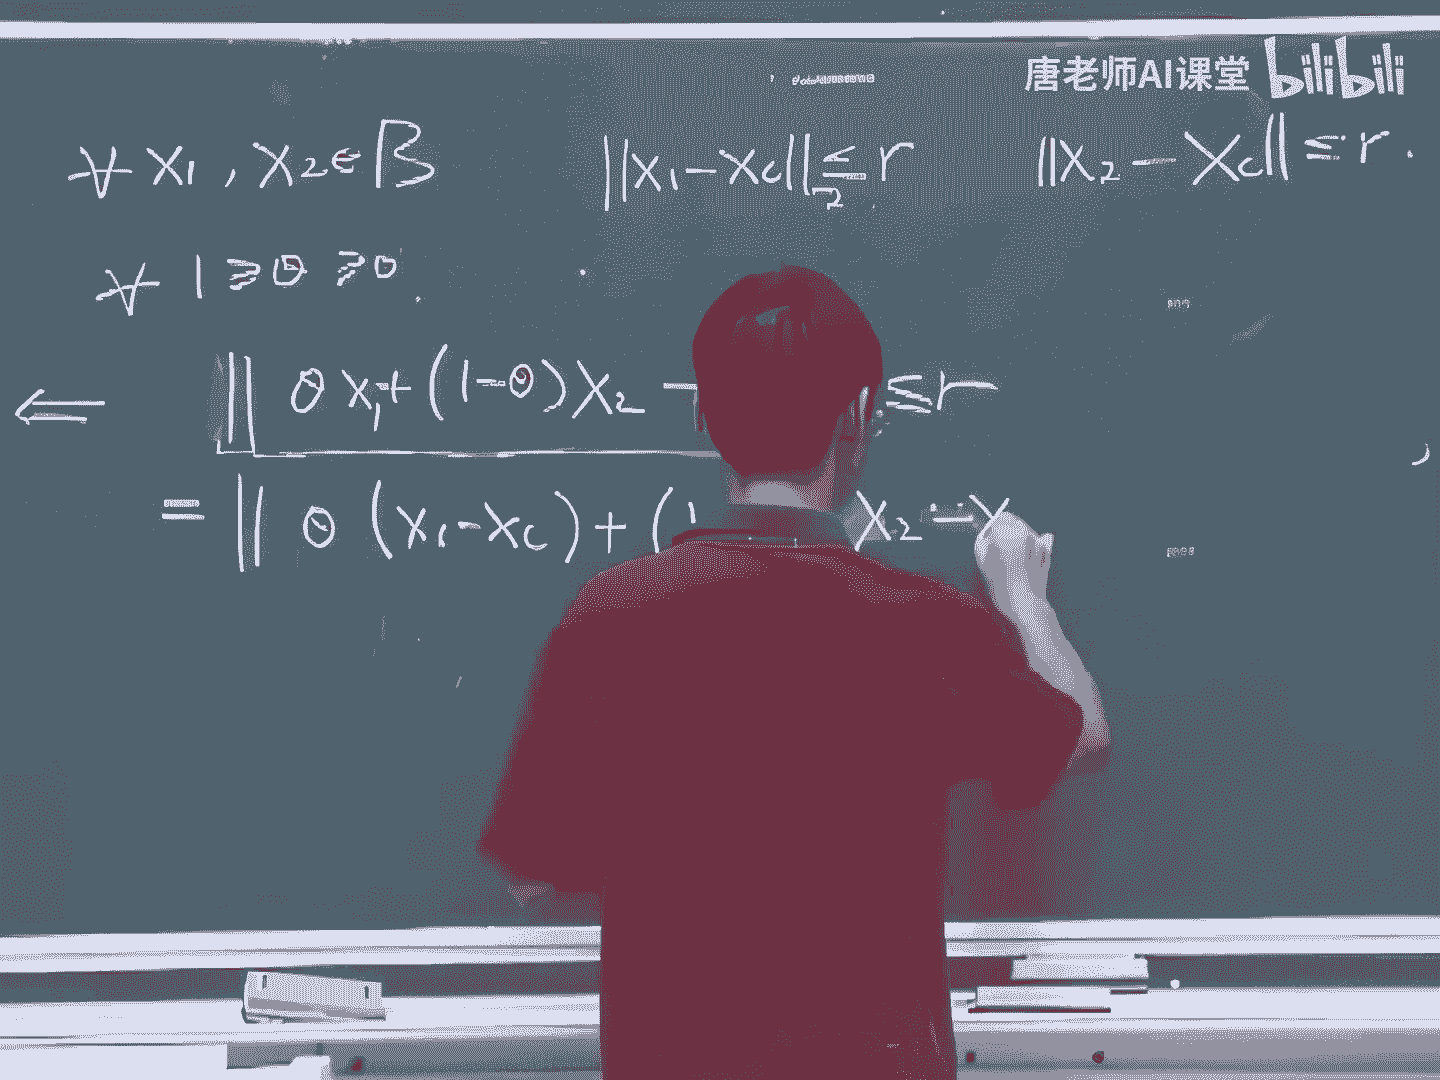 唐老师AI课堂 bilibili
∀ x₁, x₂ ∈ B ||x₁ - x_c||₂ ≤ r ||x₂ - x_c|| ≤ r.
∀ 1 ≥ θ ≥ 0.
⇐ || θ x₁ + (1-θ) x₂ - ≤ r
= || θ (x₁ - x_c) + (1 x₂ - x